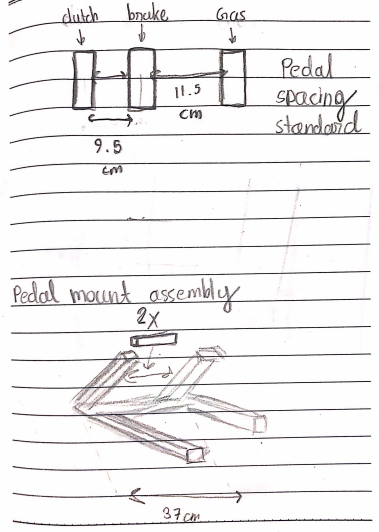 clutch brake Gas
Pedal
spacing
standard
11.5
cm
9.5
cm
Pedal mount assembly
2X
37cm